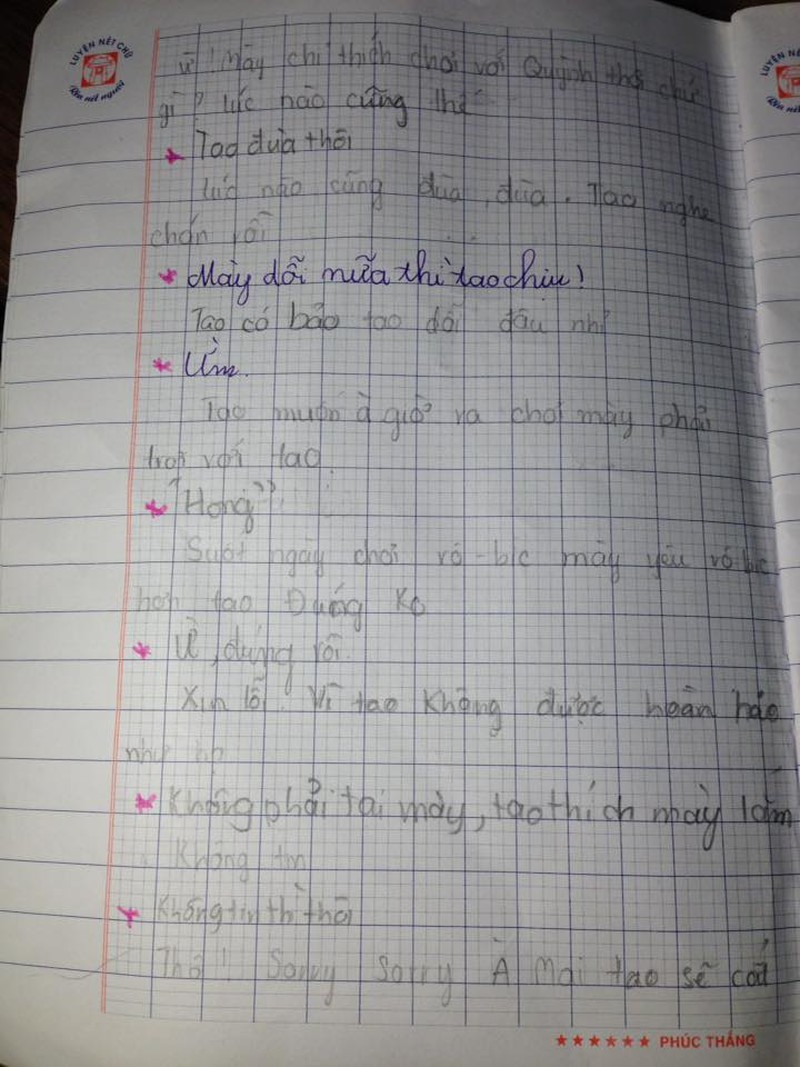 LUYỆN NẾT CHỮ
Rèn nết người
ừ! Mày chỉ thích chơi với Quỳnh thôi chứ
gì? lúc nào cũng thế
Tao đùa thôi
lúc nào cũng đùa, đùa. Tao nghe
chán rồi
Mày dỗi nữa thì tao chịu!
Tao có bảo tao dỗi đâu nhỉ
Ừm.
Tao muốn à giờ ra chơi mày phải
với tao
"Hong"
Suốt ngày chơi rô-bíc mày yêu rô bíc
hơn tao Đúng Ko
Ừ, đúng rồi.
Xin lỗi! Vì tao không được hoàn hảo
như nó
Không phải tại mày, tao thích mày lắm
Không tin
Không tin thì thôi
Thôi! Sorry Sorry À Mai tao sẽ
PHÚC THẮNG